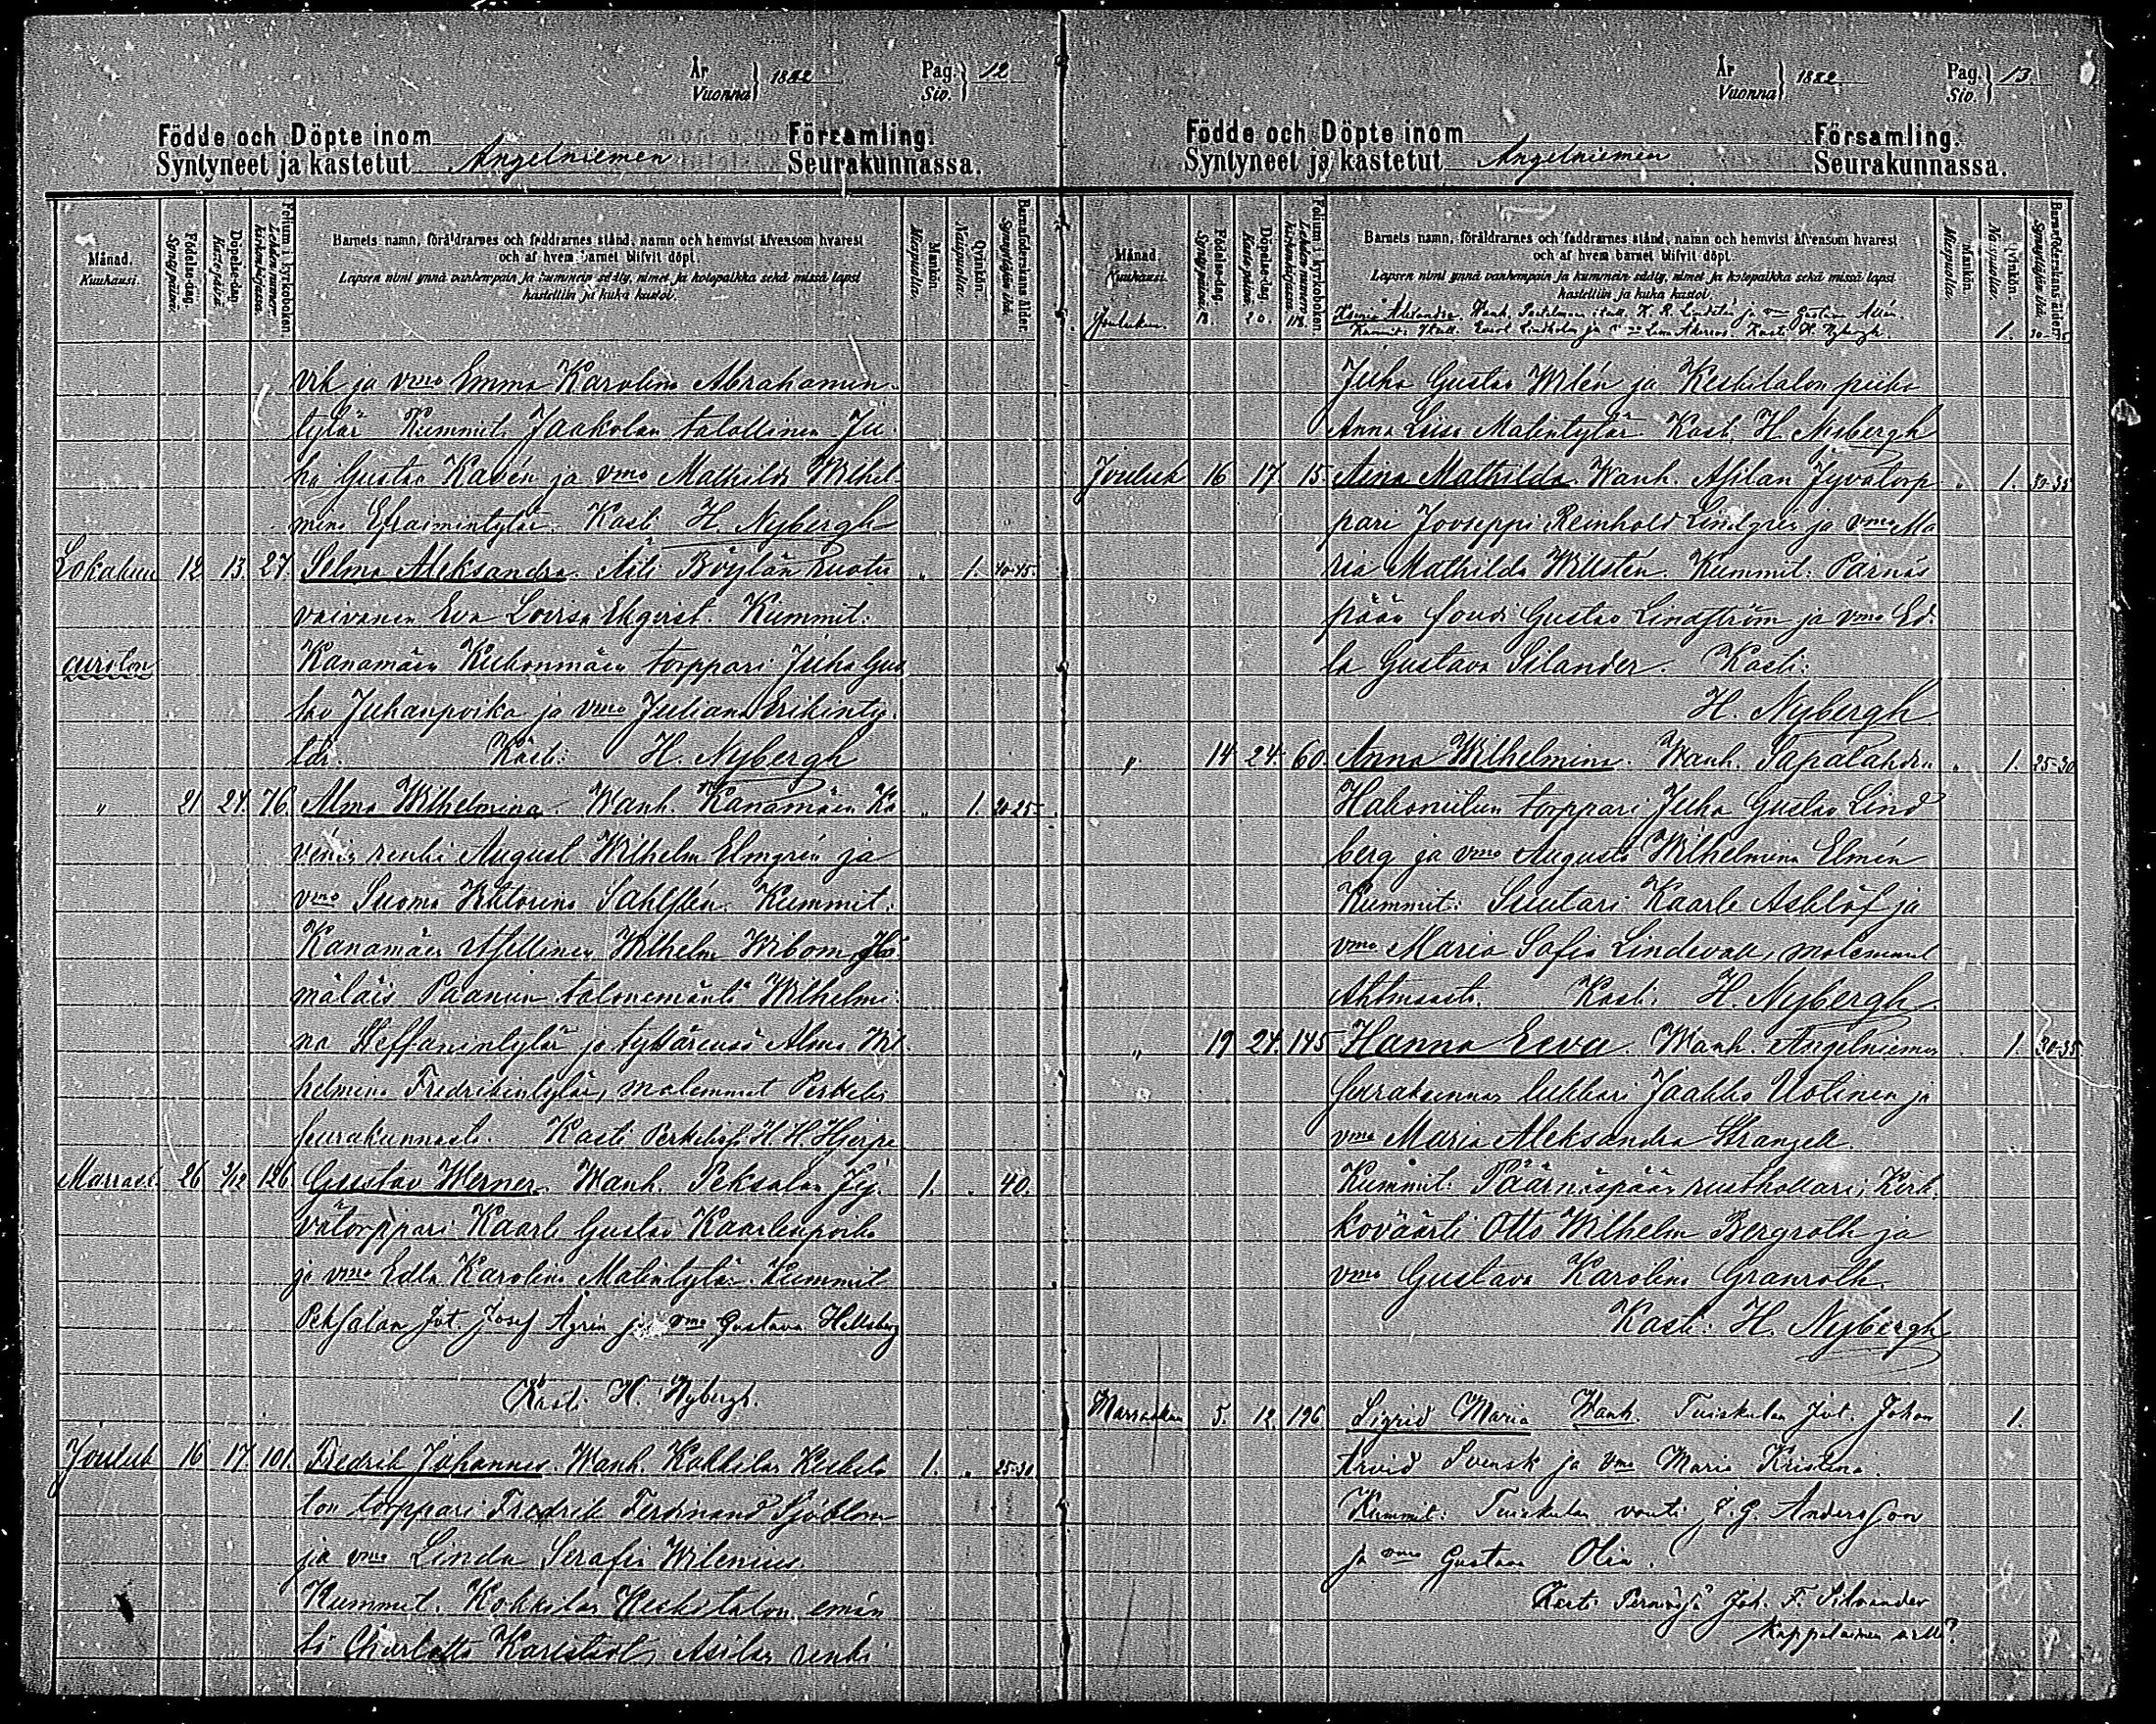 År 1882 Pag. 12
Vuonna Siv.
Födde och Döpte inom Församling.
Syntyneet ja kastetut Angelniemen Seurakunnassa.
Månad. Kuukausi.
Födelse-dag. Syntypäivä.
Döpelse-dag. Kastepäivä.
Folium i kyrkoboken. Lehden numero kirkonkirjassa.
Barnets namn, föräldrarnes och faddrarnes stånd, namn och hemvist äfvensom hvarest
och af hvem barnet blifvit döpt.
Lapsen nimi ynnä vanhempain ja kummein sääty, nimet ja kotopaikka sekä missä lapsi
kastettiin ja kuka kastoi.
Mankön. Miespuolia.
Qvinkön. Naispuolia.
Barnaföderskans ålder. Synnyttäjän ikä.
vik ja vmo Emma Karolina Abrahamin
tytär Kummit: Jaakolan talollinen Ju
ha Gustav Kavén ja vmo Mathilda Wilhel
mina Efraimintytär. Kasti H. Nybergh
Lokakuu 12 13 27 Selma Aleksandra. Äiti Böylän ruotu „ 1. 40-45.
vaivanen Eva Lovisa Ekqvist. Kummit:
Kanamäen Kiikonmäen torppari Juha Gus
tav Juhanpoika ja vmo Juliana Erikinty
tär. Kasti: H. Nybergh
„ 21 24. 76. Alma Wilhelmina. Wanh. Kanamäen Ka „ 1. 20-25.
vénin renki August Wilhelm Elmgrén ja
vmo Suoma Viktorina Sahlstén. Kummit:
Kanamäen itsellinen Wilhelm Wibom,
mäläis Paanun talonemäntä Wilhelmi
na Steffanintytär ja tyttärensä Alma Wil
helmina Fredrikintytär, molemmat Perkiks
seurakunnasta. Kasti H. Hjerpe
Marrask. 26 3/12 126 Gustav Werner. Wanh. Peksalan Jy 1. „ 40.
vätorppari Kaarle Gustav Kaarlenpoika
ja vmo Edla Karolina Matintytär. Kummit
Peksalan Jvt. Josef Agrén ja vmo Gustava Hellsberg
Kasti H. Nybergh.
Jouluk 16 17 101 Fredrik Johannes. Wanh. Kokkilan Keskita 1. „ 25-30.
lon torppari Fredrik Ferdinand Sjöblom
ja vmo Linda Serafia Wilenius.
Kummit. Kokkilan Keskitalon emän
tä Charlotta Karlstedt, Asilan renki
År 1882 Pag. 13
Vuonna Siv.
Födde och Döpte inom Församling.
Syntyneet ja kastetut Angelniemen Seurakunnassa.
Månad. Kuukausi.
Födelse-dag. Syntypäivä.
Döpelse-dag. Kastepäivä.
Folium i kyrkoboken. Lehden numero kirkonkirjassa.
Barnets namn, föräldrarnes och faddrarnes stånd, namn och hemvist äfvensom hvarest
och af hvem barnet blifvit döpt.
Lapsen nimi ynnä vanhempain ja kummein sääty, nimet ja kotopaikka sekä missä lapsi
kastettiin ja kuka kastoi.
Mankön. Miespuolia.
Qvinkön. Naispuolia.
Barnaföderskans ålder. Synnyttäjän ikä.
Joulukuu. 18. 20. 118. Alexandra. Wanh. K. R. Lindstén ja vmo Gustava Allén. 1. 30-35
Kummit: Lindholm ja vmo Lena Kasti H. Nybergh.
Juha Gustav Wilén ja Keskitalon piika
Anna Liisa Matintytär. Kasti H. Nybergh
Jouluk 16 17. 15. Aina Mathilda. Wanh. Asilan Jyvätorp „ 1. 30-35
pari Jooseppi Reinhold Lindgrén ja vmo Ma
ria Mathilda Willstén. Kummit: Pärnäs
pään fouti Gustav Lindström ja vmo Ed
la Gustava Silander. Kasti:
H. Nybergh
„ 14 24. 60. Anna Wilhelmina. Wanh. Sapalahden „ 1. 25-30
Hakoniitun torppari Juha Gustav Lind
berg ja vmo Augusta Wilhelmina Elmén
Kummit: Suutari Kaarle Asklöf ja
vmo Maria Sofia Lindevall, molemmat
Ahtmaasta. Kasti: H. Nybergh
„ 19 24. 145 Hanna Eeva. Wanh. Angelniemen 1. 30-35
seurakunnan lukkari Jaakko Uotinen ja
vmo Maria Aleksandra Strangell.
Kummit: Päärnäspään rusthollari, Kirk
koväärti Otto Wilhelm Bergroth ja
vmo Gustava Karolina Granroth.
Kasti: H. Nybergh
Marraskuu 5. 12 196 Sigrid Maria Wanh. Tuiskulan Jvt. Johan 1.
Arvid Svensk ja vmo Maria Kristina.
Kummit: Tuiskulan vouti J. G. Andersson
ja vmo Gustava Olin.
Kasti Joh. F. Silvander
Kappalainen